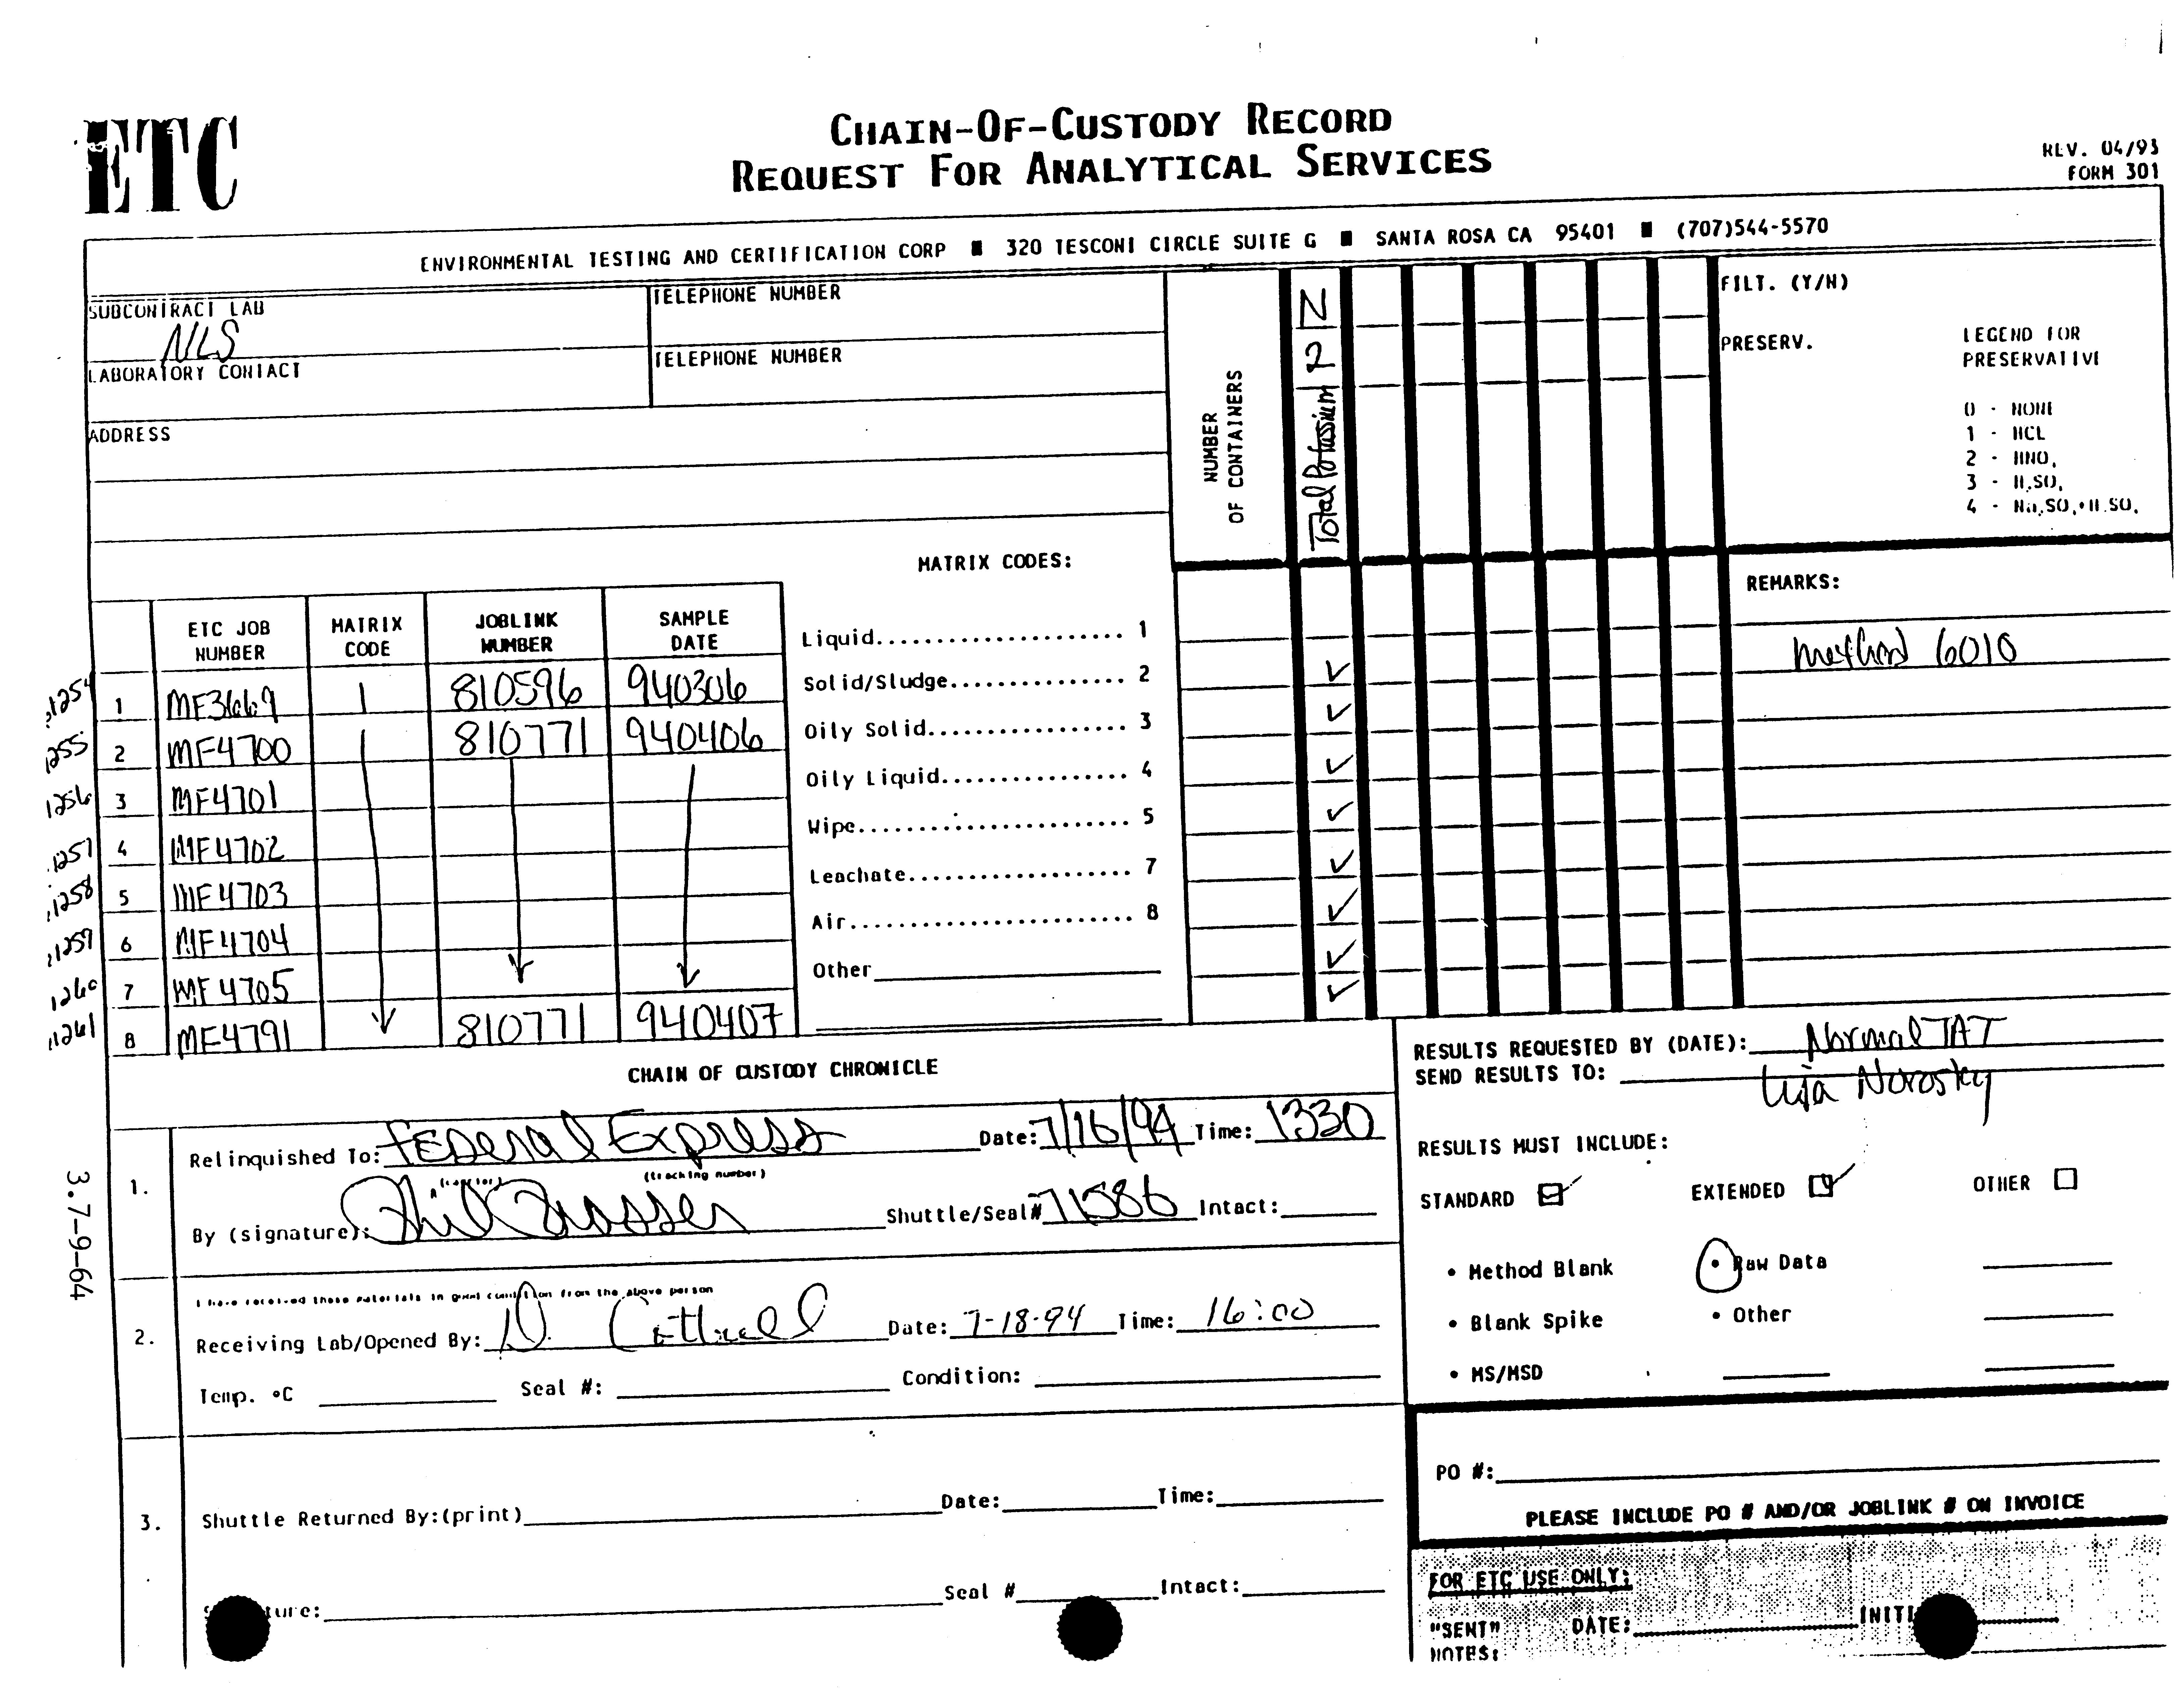 ETC
CHAIN-OF-CUSTODY RECORD
REQUEST FOR ANALYTICAL SERVICES
REV. 04/93
FORM 301
ENVIRONMENTAL TESTING AND CERTIFICATION CORP ■ 320 TESCONI CIRCLE SUITE G ■ SANTA ROSA CA 95401 ■ (707)544-5570
SUBCONTRACT LAB
NLS
TELEPHONE NUMBER
LABORATORY CONTACT
TELEPHONE NUMBER
ADDRESS
NUMBER
OF CONTAINERS
Total Potassium 2 N
FILT. (Y/N)
PRESERV.
LEGEND FOR
PRESERVATIVE
0 - NONE
1 - HCL
2 - HNO,
3 - H,SO,
4 - Na,SO,+H.SO,
MATRIX CODES:
Liquid..................... 1
Solid/Sludge............... 2
Oily Solid................. 3
Oily Liquid................ 4
Wipe....................... 5
Leachate................... 7
Air........................ 8
Other
REMARKS:
method 6010
ETC JOB NUMBER MATRIX CODE JOBLINK NUMBER SAMPLE DATE
1254 1 MF3669 1 810596 940306 ✓
1255 2 MF4700 810771 940406 ✓
1256 3 MF4701 ✓
1257 4 MF4702 ✓
1258 5 MF4703 ✓
1259 6 MF4704 ✓
1260 7 MF4705 ✓
1261 8 MF4791 810771 940407 ✓
CHAIN OF CUSTODY CHRONICLE
RESULTS REQUESTED BY (DATE): Normal TAT
SEND RESULTS TO: Norosky
1.
Relinquished To: Federal Express Date: 7/16/94 Time: 1330
(carrier) (tracking number)
By (signature): Phil Shuttle/Seal# 71586 Intact:
RESULTS MUST INCLUDE:
STANDARD EXTENDED OTHER
• Method Blank • Raw Data
• Blank Spike • Other
• MS/MSD
2.
I have received these materials in good condition from the above person
Receiving Lab/Opened By: D. Cottrell Date: 7-18-94 Time: 16:00
Temp. °C Seal #: Condition:
3.
Shuttle Returned By:(print) Date: Time:
Seal # Intact:
PO #:
PLEASE INCLUDE PO # AND/OR JOBLINK # ON INVOICE
FOR ETC USE ONLY:
"SENT" DATE: INITI
NOTES:
3.7-9-64